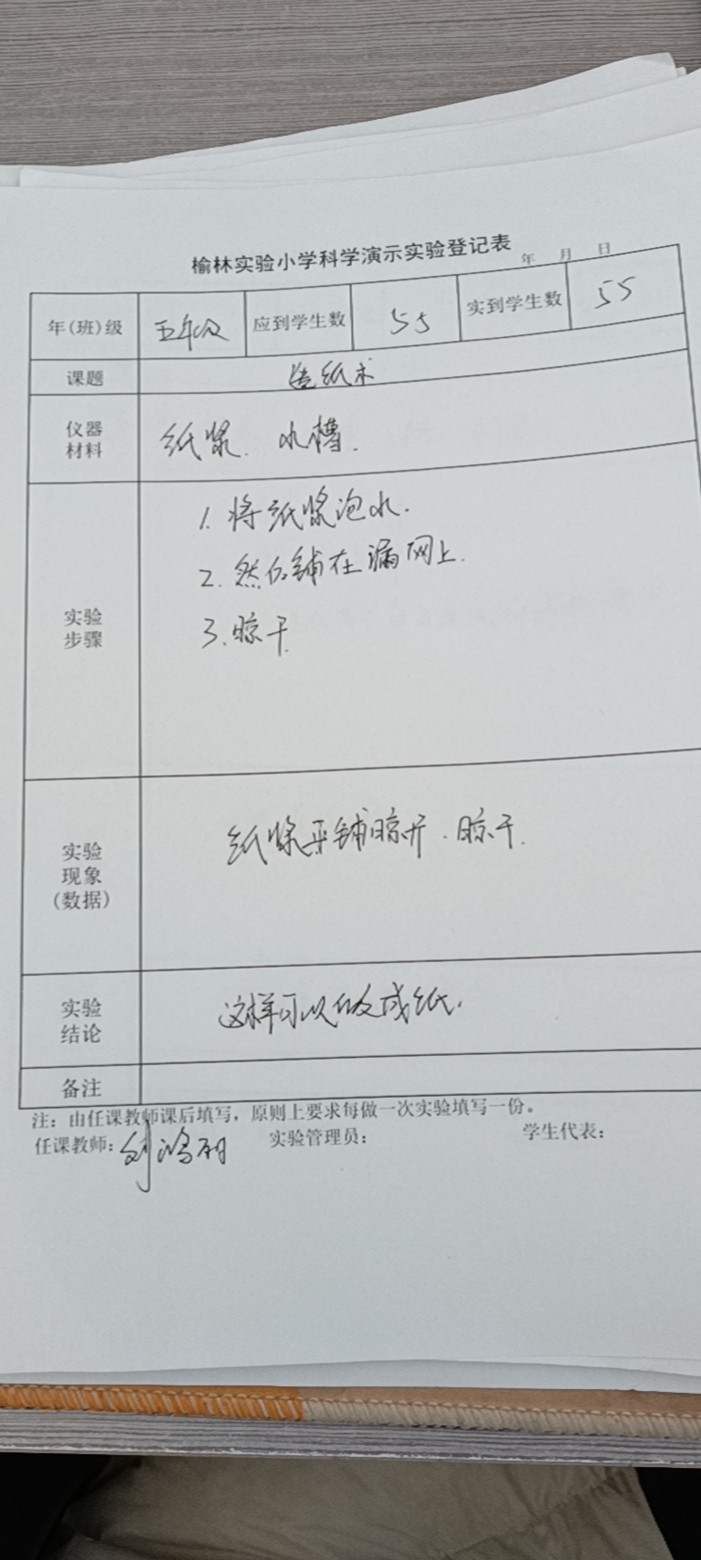 榆林实验小学科学演示实验登记表
年 月 日
年(班)级 五年级 应到学生数 55 实到学生数 55
课题 造纸术
仪器
材料
纸浆、水槽.
实验
步骤
1. 将纸浆泡水.
2. 然后铺在漏网上.
3. 晾干
实验
现象
(数据)
纸浆平铺晾开.晾干.
实验
结论
这样可以做成纸.
备注
注：由任课教师课后填写，原则上要求每做一次实验填写一份。
任课教师: 实验管理员: 学生代表: